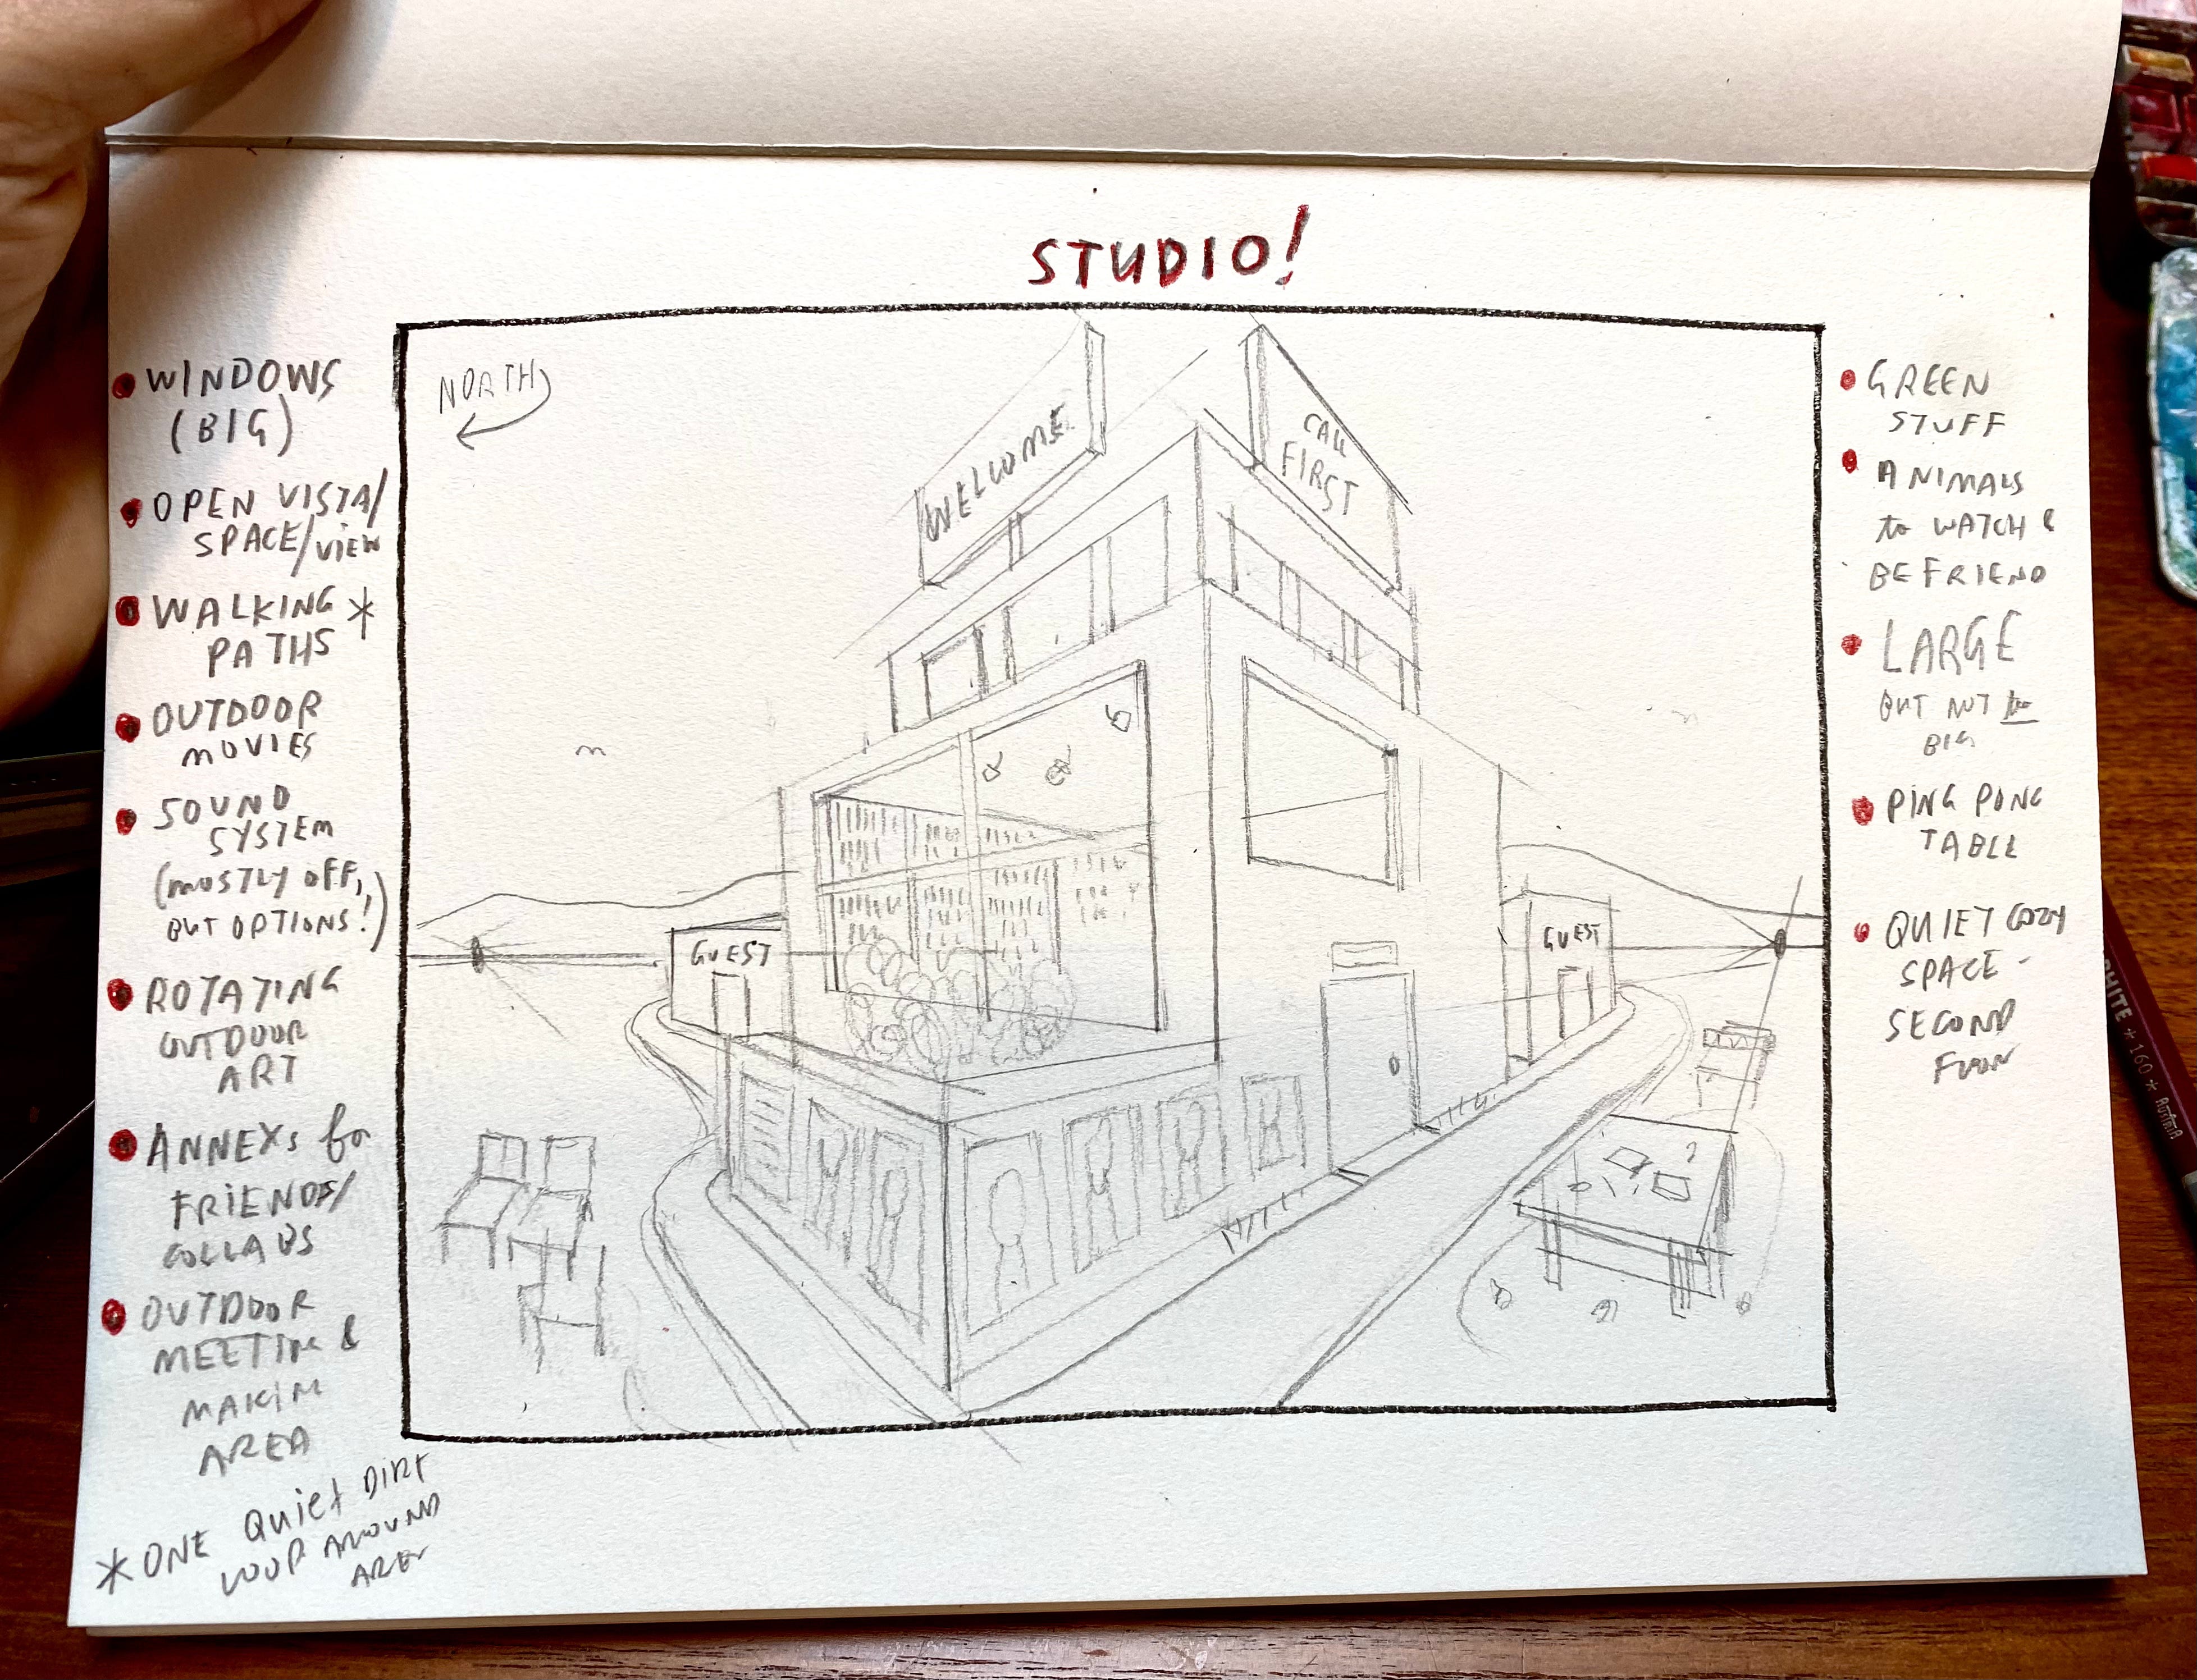 STUDIO!
WINDOWS
(BIG)
OPEN VISTA/
SPACE/VIEW
WALKING *
PATHS
OUTDOOR
MOVIES
SOUND
SYSTEM
(MOSTLY OFF,
BUT OPTIONS!)
ROTATING
OUTDOOR
ART
ANNEXs for
FRIENDS/
COLLABS
OUTDOOR
MEETING &
MAKIN
AREA
* ONE QUiet DIRT
LOOP AROUND
AREA
NORTH
WELCOME
CALL
FIRST
GUEST
GUEST
GREEN
STUFF
ANIMALS
to WATCH &
BEFRIEND
LARGE
BUT NOT too
BIG
PING PONG
TABLE
QUIET COZY
SPACE -
SECOND
FLOOR
WHITE * 160 * AUSTRIA